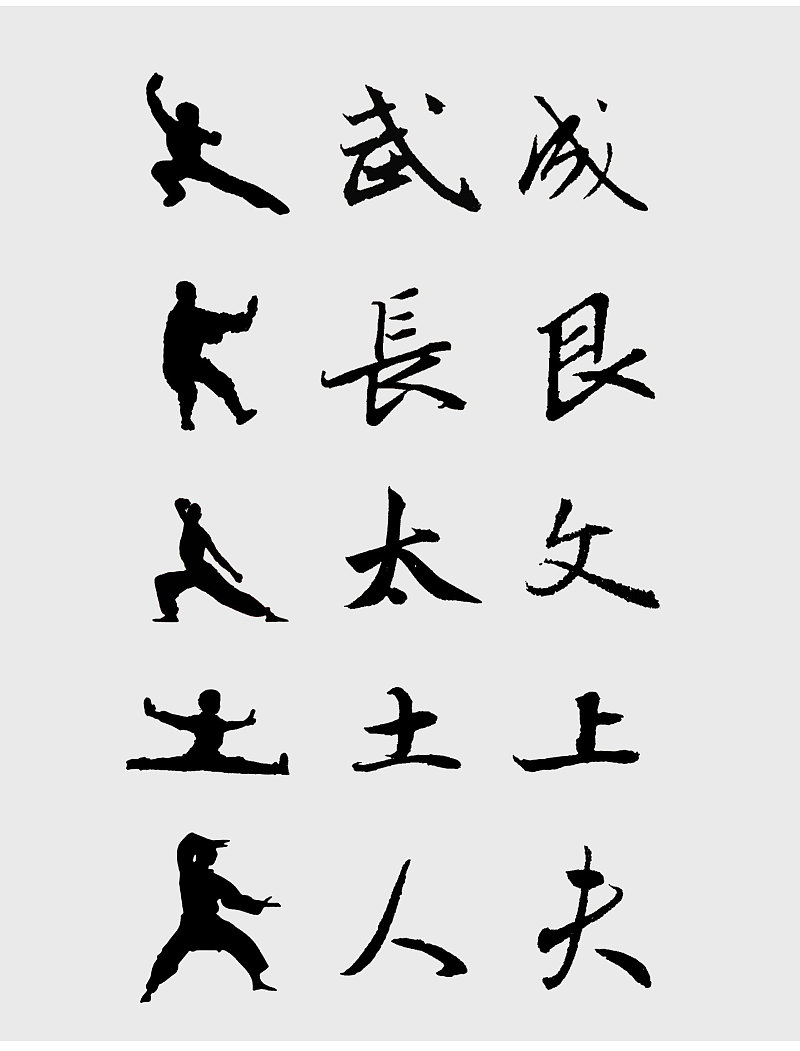 武 成
長 艮
太 文
土 上
人 夫